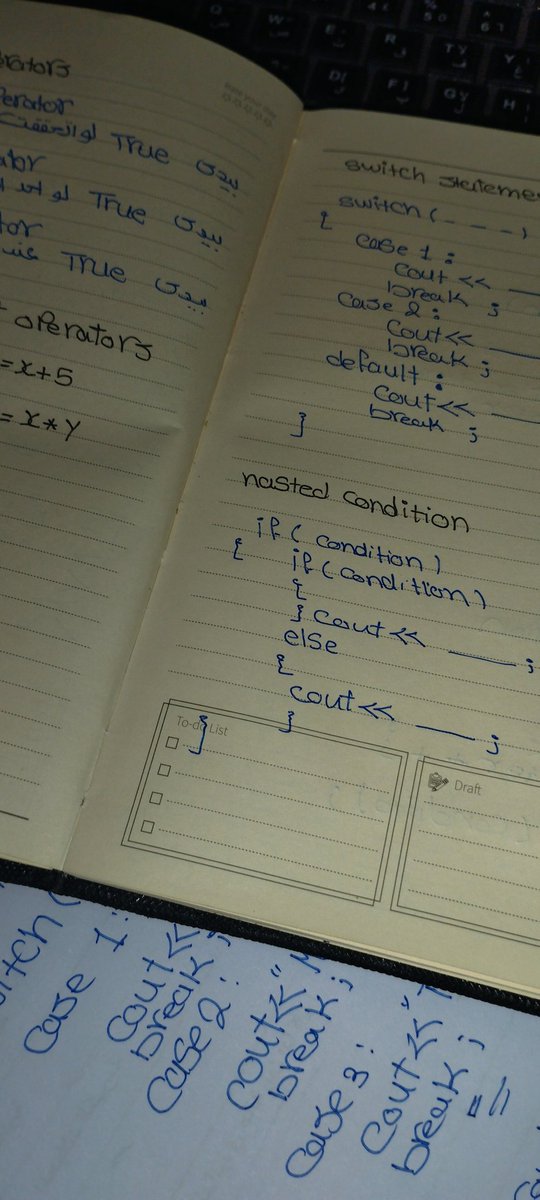 erators
erator
بيدى True لو الحققت
ator
بيدى True لو احد
tor
بيدى True
operators
=x+5
=x*y
switch stateme
switch(---)
{
case 1:
cout << ___
break;
case 2:
cout<< ___
break;
default:
cout<< ___
break;
}
nasted condition
if(condition)
{ if(condition)
{
} cout<< ___;
else
{
cout<< ___;
}
}
To-do List
Draft
itch(
case 1:
cout<<
break;
case 2:
cout<<"
break;
case 3:
cout<<"
break;
Q
W
E
R
T
Y
D
F
G
H